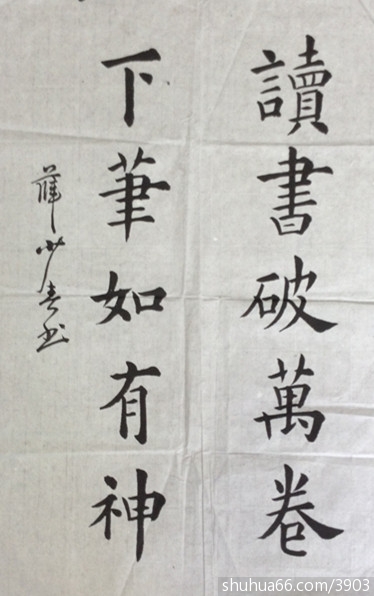 讀書破萬卷
下筆如有神
薛少春书
shuhua66.com/3903